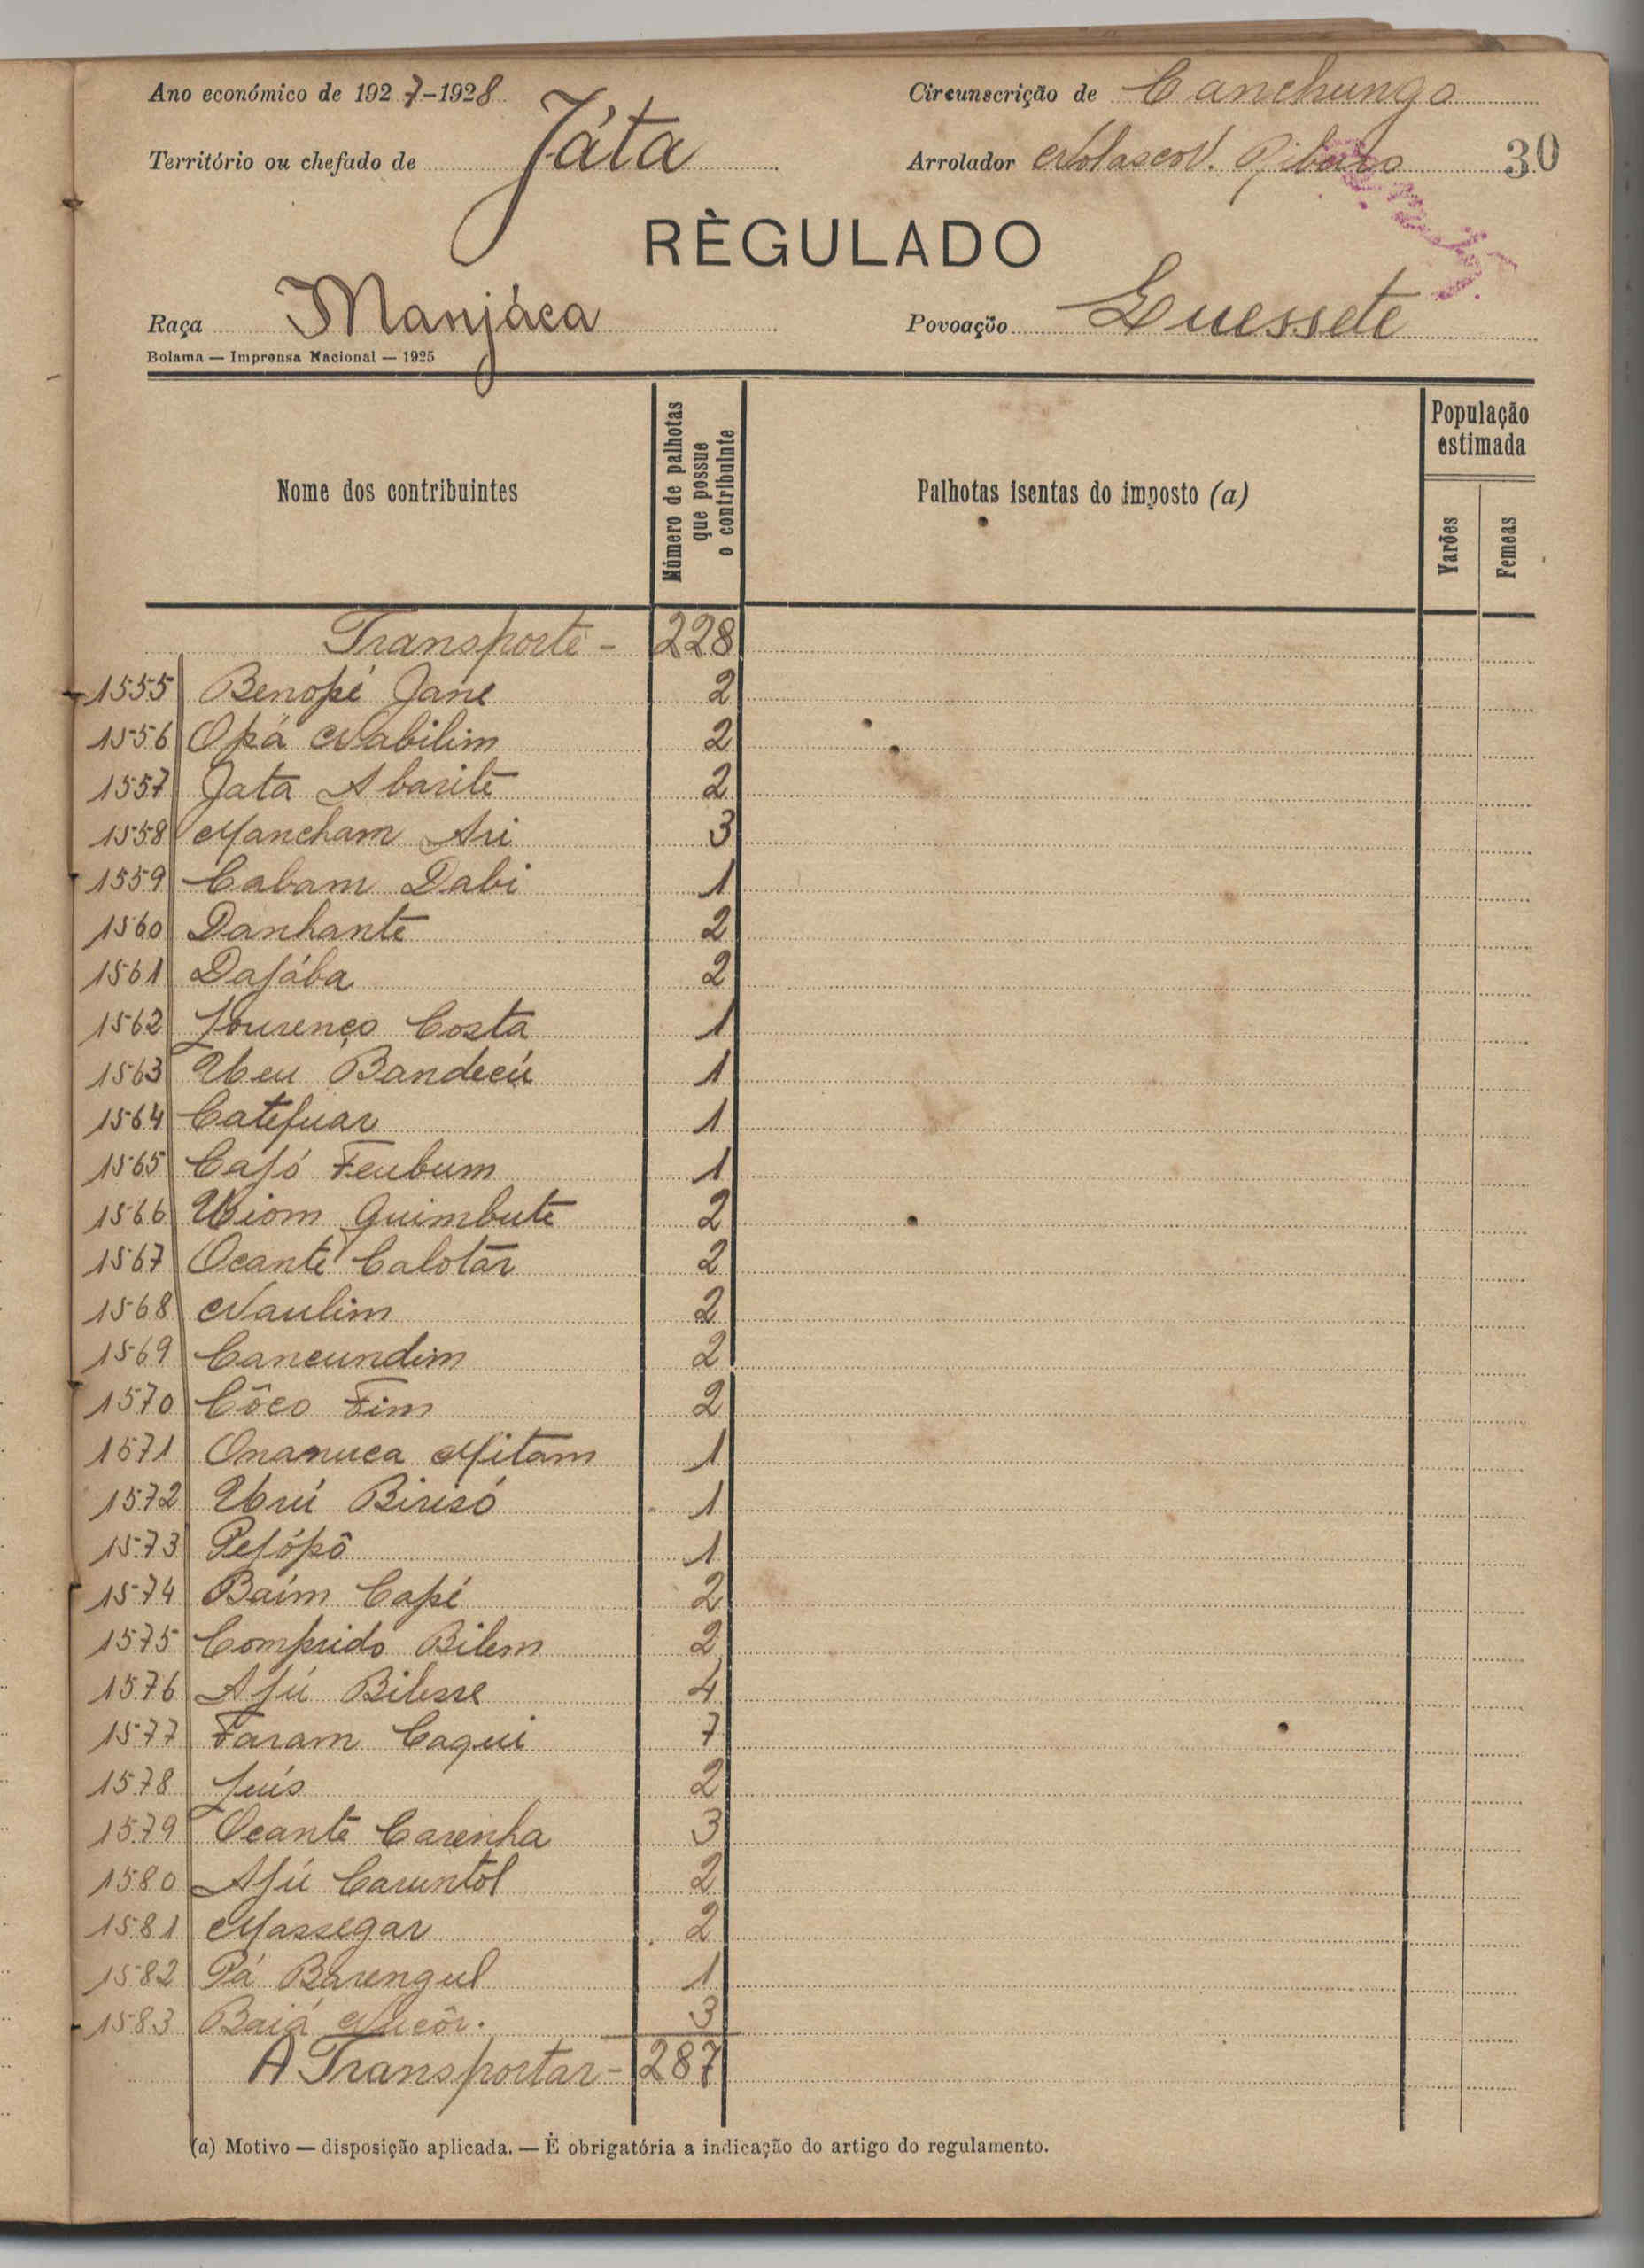 Ano económico de 1927-1928
Circunscrição de Canchungo
Território ou chefado de Játa
Arrolador Nolasco V. Ribeiro
30
RÈGULADO
Raça Manjáca
Povoação Luessete
Bolama — Imprensa Nacional — 1925
Nome dos contribuintes
Número de palhotas que possue o contribuinte
Palhotas isentas do imposto (a)
População estimada
Varões
Femeas
Transporte - 228
1555 Benopé Jane 2
1556 Opá Nabilim 2
1557 Jata Abarite 2
1558 Mancham Ari 3
1559 Cabam Dabi 1
1560 Danhante 2
1561 Dajába 2
1562 Lourenço Costa 1
1563 Ubeu Bandecú 1
1564 Catefuar 1
1565 Cajó Feubum 1
1566 Ubiom Guimbute 2
1567 Ocante Calotar 2
1568 Naulim 2
1569 Cancundim 2
1570 Côco Fim 2
1571 Onanuca Mitam 1
1572 Ubrú Birisó 1
1573 Pejópô 1
1574 Baím Capé 2
1575 Comprido Bilem 2
1576 Ajú Bilesse 4
1577 Faram Caqui 7
1578 Luís 2
1579 Ocante Carenha 3
1580 Ajú Caruntol 2
1581 Massegar 2
1582 Pá Barengul 1
1583 Baiá Nucôr. 3
A Transportar - 287
(a) Motivo — disposição aplicada. — É obrigatória a indicação do artigo do regulamento.